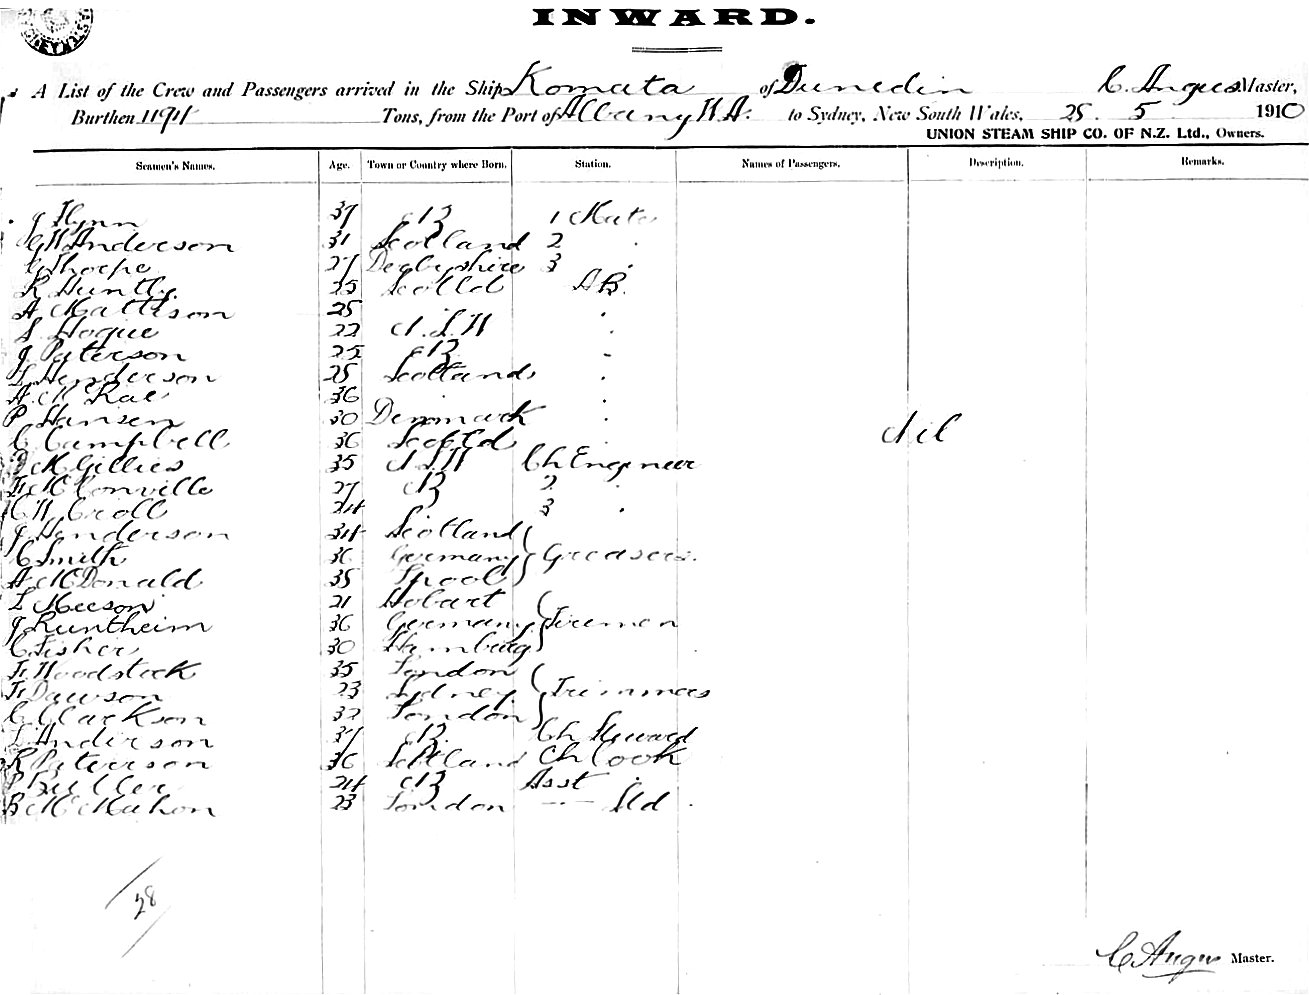 INWARD.
A List of the Crew and Passengers arrived in the Ship Komata of Dunedin C. Angus Master,
Burthen 1194 Tons, from the Port of Albany W.A. to Sydney, New South Wales, 25 5 1910
UNION STEAM SHIP CO. OF N.Z. Ltd., Owners.
Seamen's Names. Age. Town or Country where Born. Station. Names of Passengers. Description. Remarks.
J Flynn 37 NZ 1 Mate
G W Anderson 31 Scotland 2 "
G Thorpe 27 Derbyshire 3 "
R Huntly 25 Scotld AB.
A Mattison 25 " "
S Hogue 22 N.S.W "
J Paterson 25 NZ "
L Henderson 25 Scotland "
A McRae 36 " "
P Hansen 30 Denmark "
C Campbell 36 Scotld " Nil
D McGillies 35 N.S.W Ch Engineer
F McConville 27 NZ 2 "
C W Croll 24 " 3 "
J Henderson 34 Scotland
C Smith 36 Germany Greasers
A McDonald 35 Lpool
L Meeson 21 Hobart
J Runtheim 36 Germany Firemen
C Fisher 30 Hamburg
F Woodstock 35 London
F Dawson 23 Sydney Trimmers
C Clackson 32 London
L Anderson 37 NZ. Ch Steward
R Paterson 36 Scotland Ch Cook
P Butler 24 NZ Asst "
B McMahon 23 London " Std
28
C Angus Master.